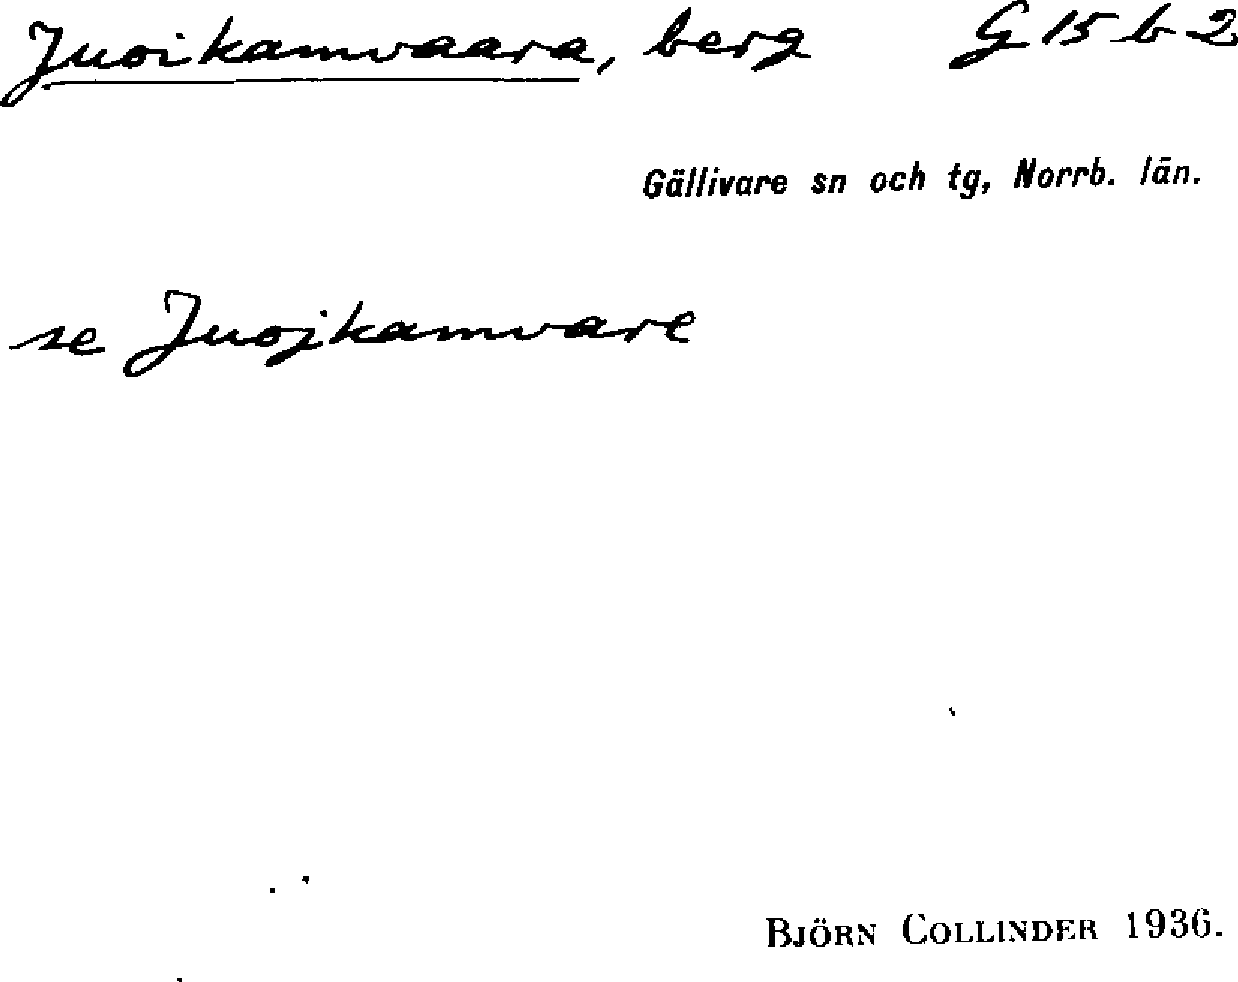 Juoikamvaara, berg G 15 b 2
Gällivare sn och tg, Norrb. län.
se Juojkamvare
BJÖRN COLLINDER 1936.